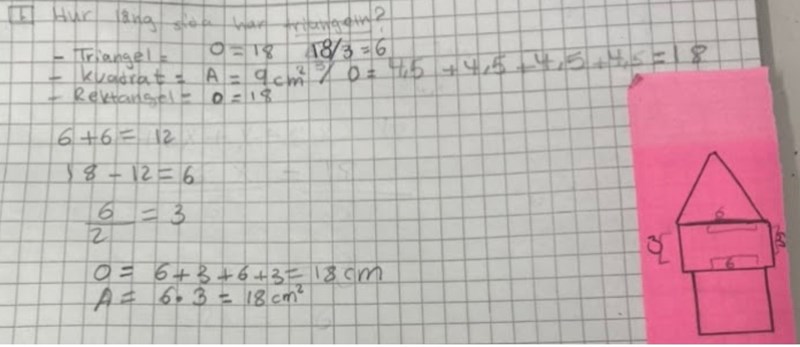 1 Hur lång sida har triangeln?
- Triangel = O = 18 18/3 = 6
- Kvadrat = A = 9 cm² / O = 4,5 + 4,5 + 4,5 + 4,5 = 18
- Rektangel = O = 18
6 + 6 = 12
18 - 12 = 6
6/2 = 3
O = 6 + 3 + 6 + 3 = 18 cm
A = 6 • 3 = 18 cm²
6
3
6